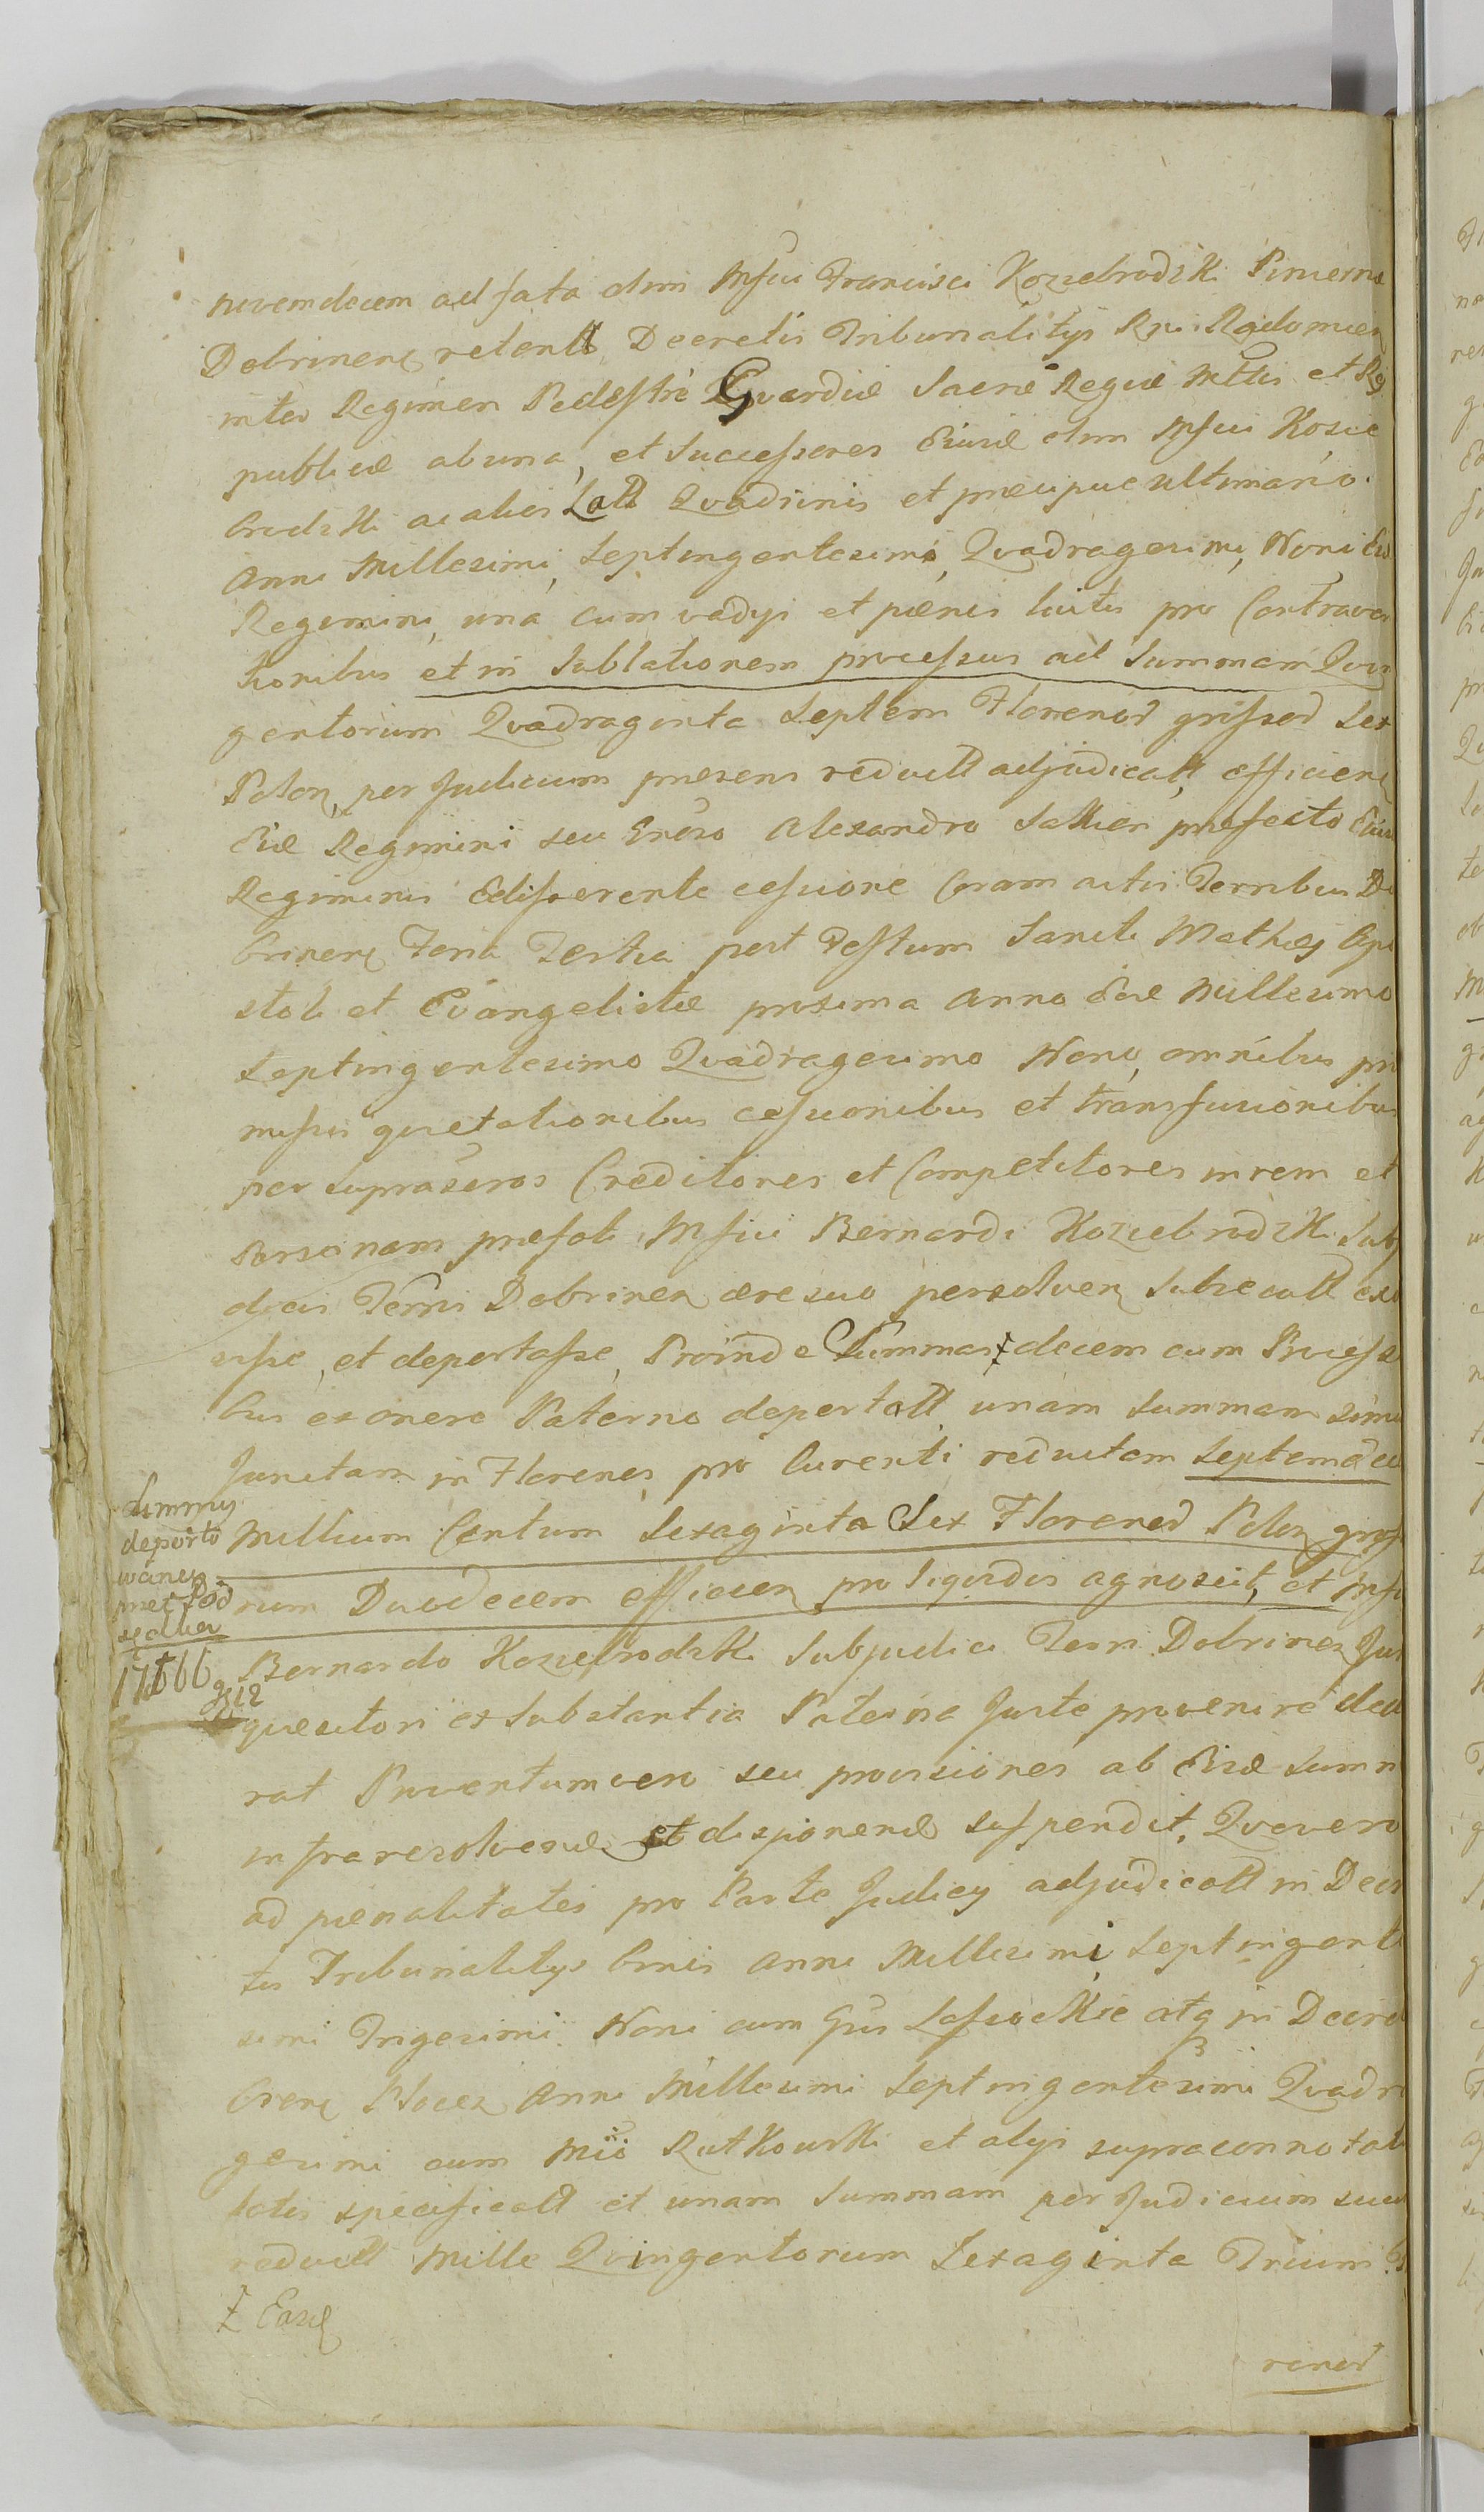 novemdecem ad fata olim Mfici Francisci Koziebrodzki Pincernæ
Dobrinens retentt Decretis Tribunalitijs Rni Radomien
inter Regimen Pedestre Gvardiæ Sacræ Regiæ Mttis et Rei
publicæ ab una, et Successores Eiusd olim Mfici Kozie
brodzki ac alios Latt Qvadrinis et præcipue ultimario
Anni Millesimi, Septingentesimi, Qvadragesimi, Noni Eid
Regimini, una cum vadijs et pænis luitis pro Contraven
tionibus et in Sublationem processus ad Summam Qvin
gentorum Qvadraginta Septem Florenor grossor Sex
Polon, per Judicium præsens reductt adjudicatt, efficien
Eid Regimini seu Gnroso Alexandro Sakien præfecto Eius
Regiminis Edisserente cessione Coram actis Terribus Do
brinens Feria Tertia post Festum Sancti Mathæj Apo
stoli et Evangelistæ proxima Anno Eod Millesimo
Septingentesimo Qvadragesimo Nono, omnibus præ
missis quietationibus cessionibus et transfusionibus
per supraseros Creditores et Competitores in rem et
Personam præfati Mfici Bernardi Koziebrodzki Sub
dicis Terris Dobrinen ære suo persolven subsecutt ex
isse, et deportasse, Proinde Summas ‡ decem cum Process
bus ex onere Paterno deportatt unam Summam simul
Junctam in Florenos pro Curenti reductam Septemdecim
Millium Centum Sexaginta Sex Florenor Polon gross
rum Duodecem efficien pro liqvidis agnoscit, et Mfico
Bernardo Koziebrodzki Subjudici Terri Dobrinen Jur
quæsitori ex Substantia Paterna Juste provenire decla
rat Proventum vero seu provisiones ab Eisd Summ
infra resolvend et disponend suspendit, Qvo vero
ad pænalitates pro Parte Judicij adjudicatt in Decre
tis Tribunalitijs binis Anni Millesimi Septingente
simi Trigesimi Noni cum Gsis Lassockie atq in Decreto
brens Plocen Anni Millesimi Septingentesimi Qvadra
gesimi cum Mco Rutkowski et alijs supraconnotatis
latis specificatt et unam Summam per Judicium suum
reductt Mille Qvingentorum Sexaginta Trium Flo
‡ Easd
renor
Summy
deporto
waney
przez Pod
sędka
17166 g 12